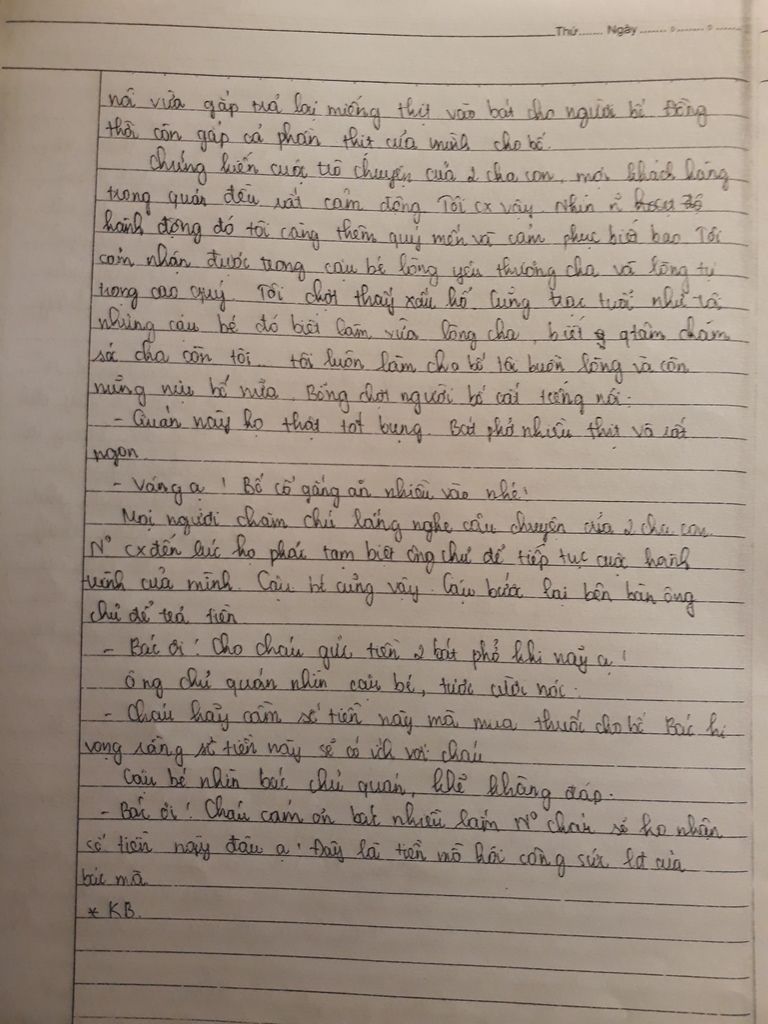 Thứ....... Ngày
nói vừa gắp trả lại miếng thịt vào bát cho người bố. Đồng
thời còn gắp cả phần thịt của mình cho bố.
Chứng kiến cuộc trò chuyện của 2 cha con, mọi khách hàng
trong quán đều rất cảm động. Tôi cx vậy. Nhìn n
hành động đó tôi càng thêm quý mến và cảm phục biết bao. Tôi
cảm nhận được trong cậu bé lòng yêu thương cha và lòng tự
trọng cao quý. Tôi chợt thấy xấu hổ. Cũng trạc tuổi như
nhưng cậu bé đó biết làm vừa lòng cha, biết qtâm chăm
só cha còn tôi... tôi luôn làm cho bố tôi buồn lòng và còn
nũng nịu bố nữa. Bỗng chợt người bố cất tiếng nói:
- Quán này họ thật tốt bụng. Bát phở nhiều thịt và rất
ngon.
- Vâng ạ! Bố cố gắng ăn nhiều vào nhé!
Mọi người chăm chú lắng nghe câu chuyện của 2 cha con.
N° cx đến lúc họ phải tạm biệt ông chủ để tiếp tục cuộc hành
trình của mình. Cậu bé cũng vậy. Cậu bước lại bên bàn ông
chủ để trả tiền
- Bác ơi! Cho cháu gửi tiền 2 bát phở khi nãy ạ!
Ông chủ quán nhìn cậu bé, tươi cười nói:
- Cháu hãy cầm số tiền này mà mua thuốc cho bố. Bác hi
vọng rằng số tiền này sẽ có ích với cháu
Cậu bé nhìn bác chủ quán, khẽ khàng đáp.
- Bác ơi! Cháu cảm ơn bác nhiều lắm N° cháu sẽ ko nhận
số tiền này đâu ạ! Đây là tiền mồ hôi công sức lđ của
bác mà
* KB.